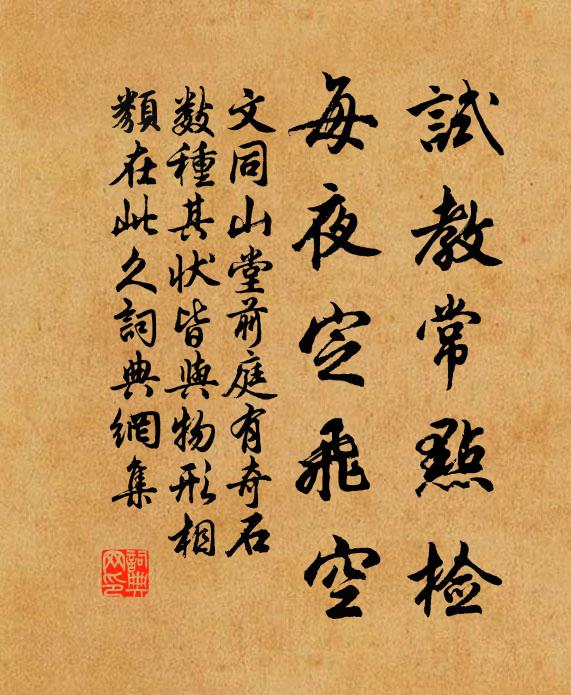 試教常點檢
每夜定飛空
文同山堂前庭有奇石
數種其狀皆與物形相
類在此久詞典網集
詞典网印